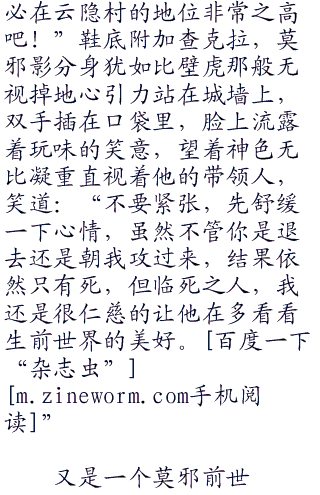 必在云隐村的地位非常之高
吧！”鞋底附加查克拉，莫
邪影分身犹如比壁虎那般无
视掉地心引力站在城墙上，
双手插在口袋里，脸上流露
着玩味的笑意，望着神色无
比凝重直视着他的带领人，
笑道：“不要紧张，先舒缓
一下心情，虽然不管你是退
去还是朝我攻过来，结果依
然只有死，但临死之人，我
还是很仁慈的让他在多看看
生前世界的美好。[百度一下
“杂志虫”]
[m.zineworm.com手机阅
读]”
又是一个莫邪前世